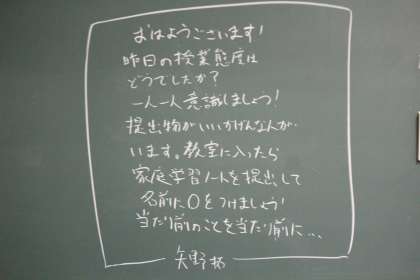 おはようございます!
昨日の授業態度は
どうでしたか?
一人一人意識しましょう!
提出物がいいかげんなんが
います。教室に入ったら
家庭学習ノートを提出して
名前に○をつけましょう!
当たり前のことを当たり前に…
矢野拓